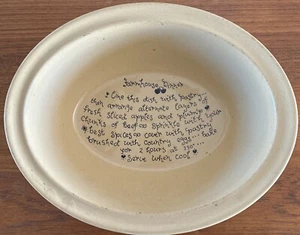 Farmhouse Dinner
One this dish with pastry
then arrange alternate layers of
fresh sliced apples and
chunks of Beef sprinkle with your
best spices cover with pastry
brushed with country eggs bake
for 2 hours at 350°
Serve when cool